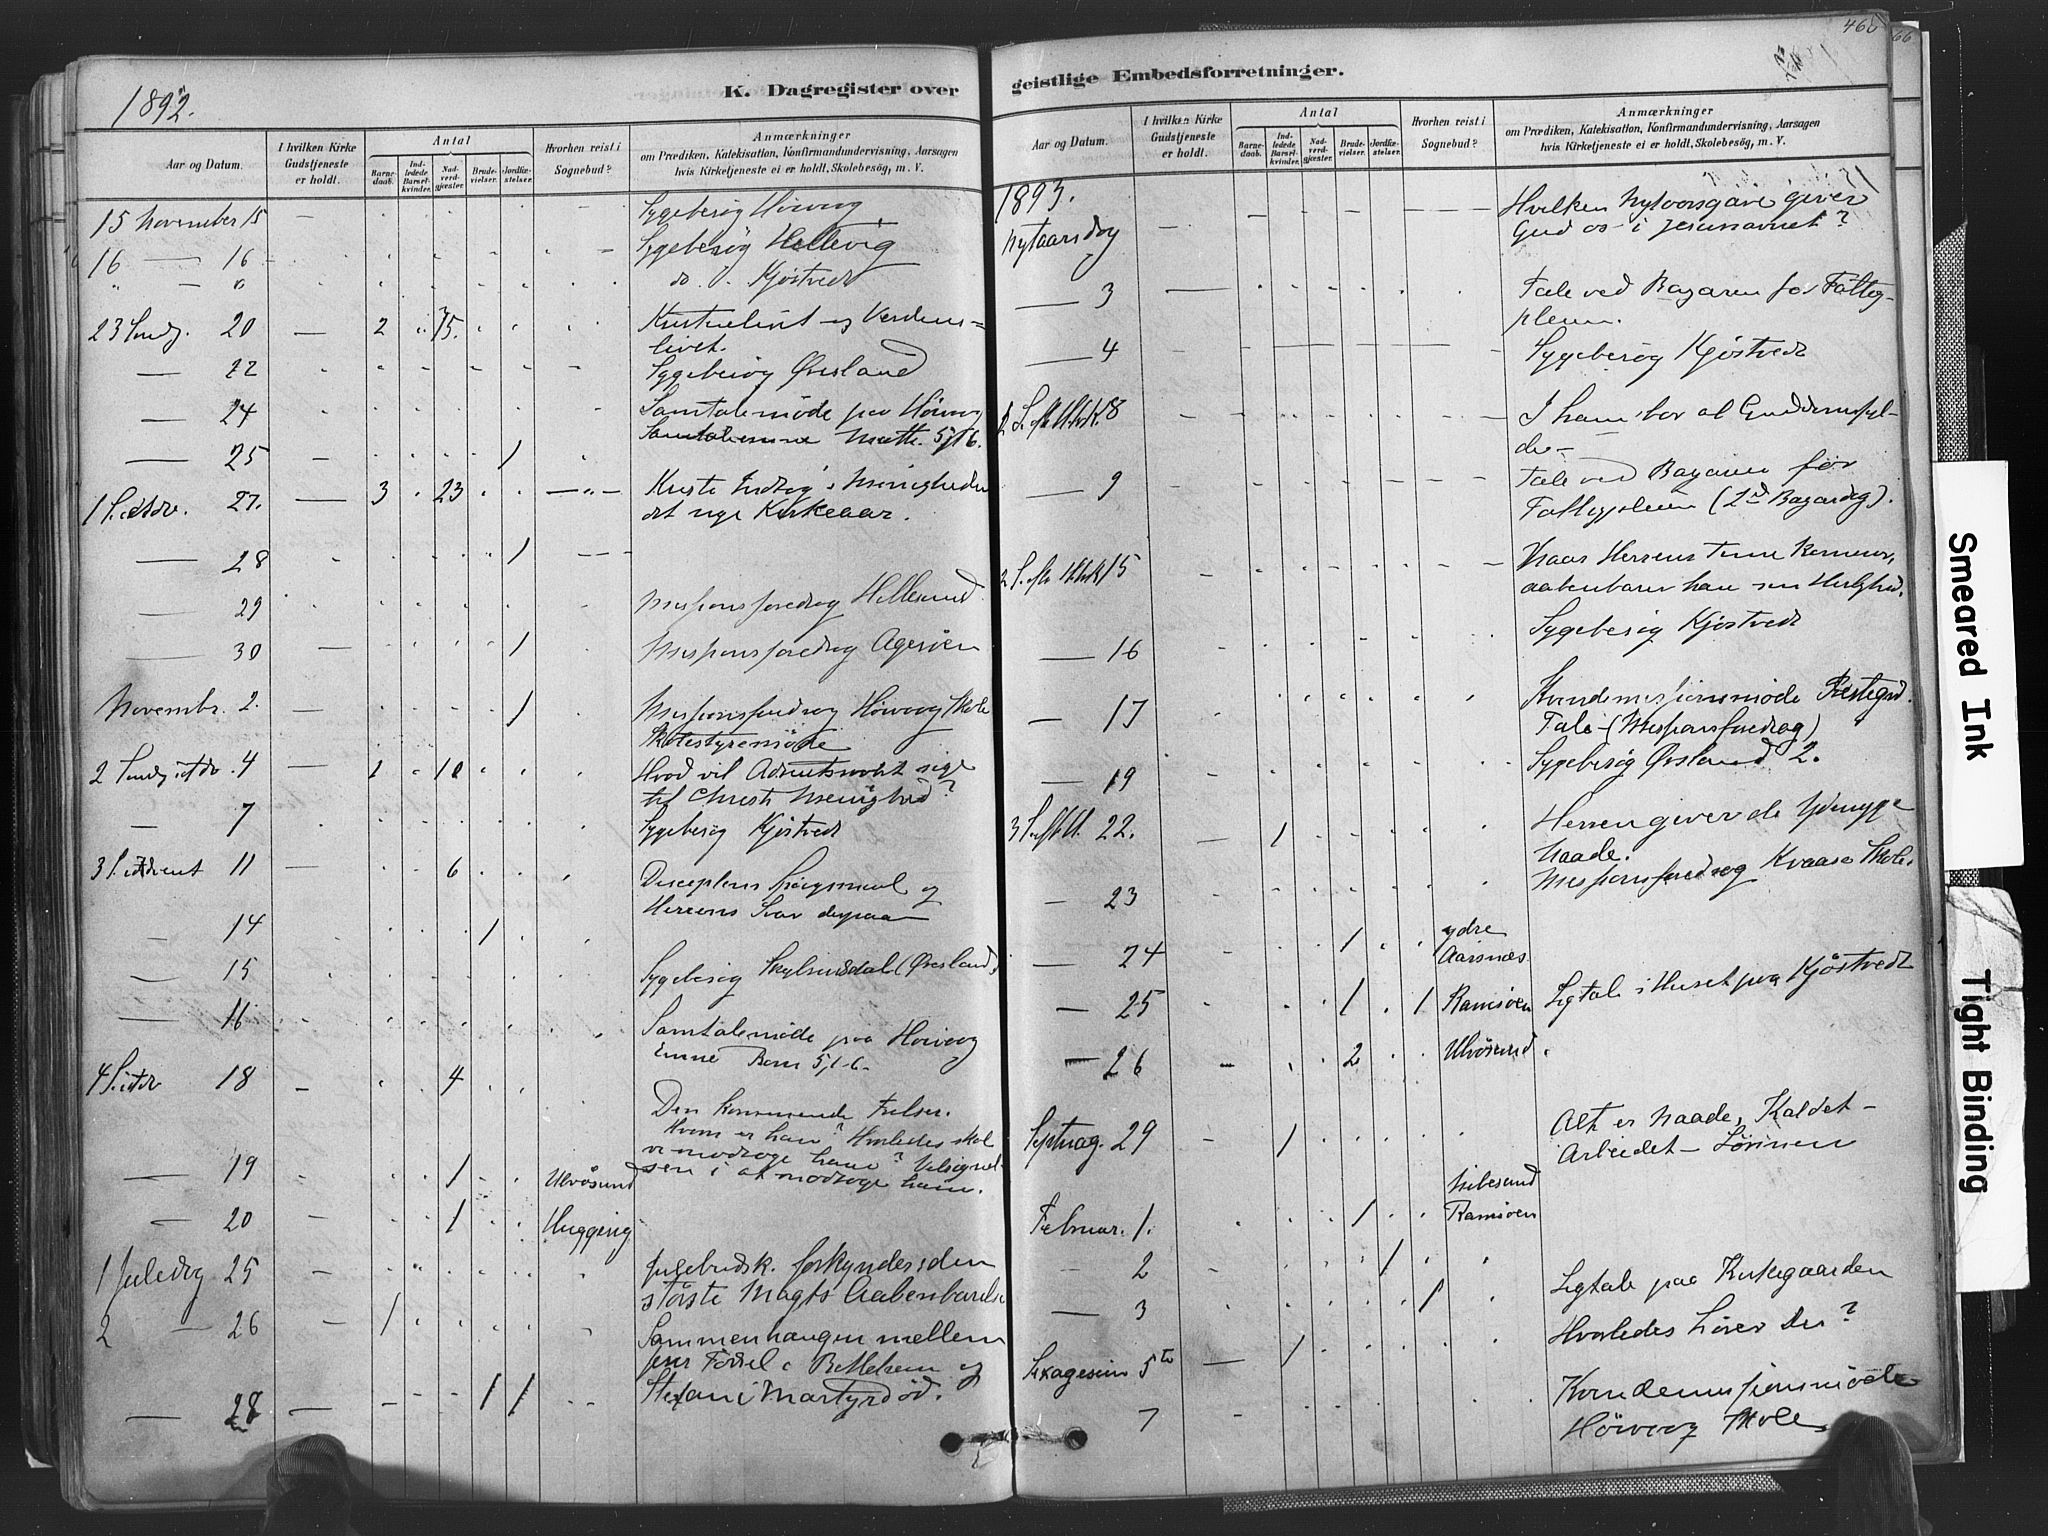 466
66
1892.
K. Dagregister over
geistlige Embedsforretninger.
Aar og Datum.
I hvilken Kirke Gudstjeneste er holdt.
Antal
Barnedaab.
Indledede Barselkvinder.
Nadverdgjester.
Brudevielser.
Jordfæstelser.
Hvorhen reist i Sognebud?
Anmærkninger
om Prædiken, Katekisation, Konfirmandundervisning, Aarsagen
hvis Kirketjeneste ei er holdt, Skolebesøg, m. V.
15 November 15 Sygebesøg Høivaag
16 — 16 Sygebesøg Hellevig
" — " do. Kjøstvedt
23 Søndg. 20 — 2 75. Kristenlivet og Verdens-
livet.
— 22 Sygebesøg Øvesland
— 24 Samtalemøde paa Høivaag
Samtaleemne Matth. 5, 1-6.
— 25 1
1 S. i Adv. 27. — 3 23 Kristi Indtog i Menigheden
det nye Kirkeaar.
— 28 1
— 29 Missionsforedrag Hellesund
— 30 1 Missionsforedrag Agerøen
Novembr. 2. 1 Missionsforedrag Høivaag Skole
Skolestyremøde
2 Søndg i Adv. 4 — 1 10 Hvad vil Adventsraabt sige
til Christi Menighed?
— 7 Sygebesøg Kjøstvedt
3 S. i Advent 11 — 6 Disciplens Spørgsmaal og
Herrens Svar derpaa
— 14 1
— 15 Sygebesøg (Øvesland)
— 16 Samtalemøde paa Høivaag
Emne Rom 5, 1-6.
4 S. i Adv 18 — 4 Den kommende Frelser.
Hvem er han? Hvorledes skal
vi modtage ham? Velsignel-
sen i at modtage ham.
— 19 1 Ulvøsund
— 20 1
1 Juledag 25 Julebudsk. forkyndes i den
største Magts Aabenbarelse
2 — 26 1 Sammenhængen mellem
Jesu Fødsel i Bethlehem og
Stefani Martyrdød.
— 28 — 1 1
Aar og Datum.
I hvilken Kirke Gudstjeneste er holdt.
Antal
Barnedaab.
Indledede Barselkvinder.
Nadverdgjester.
Brudevielser.
Jordfæstelser.
Hvorhen reist i Sognebud?
Anmærkninger
om Prædiken, Katekisation, Konfirmandundervisning, Aarsagen
hvis Kirketjeneste ei er holdt, Skolebesøg, m. V.
1893.
Nytaarsdag — Hvilken Nytaarsgave giver
Gud os i Jesunavnet?
— 3 Tale ved Bazaren for Fattig-
pleien.
— 4 Sygebesøg Kjøstvedt
8 I ham bor al Guddomsfyl-
de—
— 9 Tale ved Bazaren for
Fattigpleien (2den Bazardag).
2 S. 15 Naar Herrens Time kommer,
aabenbarer han sin Herlighed.
— 16 Sygebesøg Kjøstvedt
— 17 Kvindemissionsmøde Prestegrd.
Tale (Missionsforedrag)
— 19 Sygebesøg Øvsland 2.
3 S. 22. — 1 Herren giver de Ydmyge
Naade.
— 23 Missionsforedrag Kvaase Skole
— 24 1 ydre
Aarsnes
— 25 1 1 Ramsøen Ligtale i Huset paa Kjøstvedt
— 26 2 Ulvøsund
Septuag. 29 1 Alt er Naade, Kaldet—
Arbeidet—Lønnen
Februar. 1. 1
Ramsøen
— 2 1
— 3 1 Ligtale paa Kirkegaarden
Sexagesim 5te — 1 Hvorledes hører Du?
7 Kvindemissionsmøde
Høivaag Skole
Smeared Ink
Tight Binding